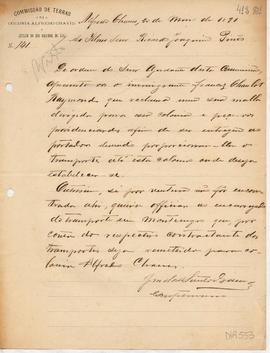 COMMISSÃO DE TERRAS
COLONIA ALFREDO CHAVES
ESTADO DO RIO GRANDE DO SUL
N. 141
Alfredo Chaves, 20 de Maio de 1891
Ao Illmo Snr Ricardo Joaquim
De ordem do Snr Ajudante desta Commissão
apresento vos o immigrante francez Charles
Raymond que reclama uma sua malla
dirigida para essa colonia e peço vos
providencias afim de ser entregue ao
portador sendo proporcionado lhe o
transporte até esta colonia onde deseja
estabelecer se.
Outrosim, si por ventura não fôr encon
trada ahi, queira officiar ao encarregado
do transporte em Montenegro que por
conta do respectivo contractante dos
transportes seja remettida para co
lonia Alfredo Chaves.
Escripturario